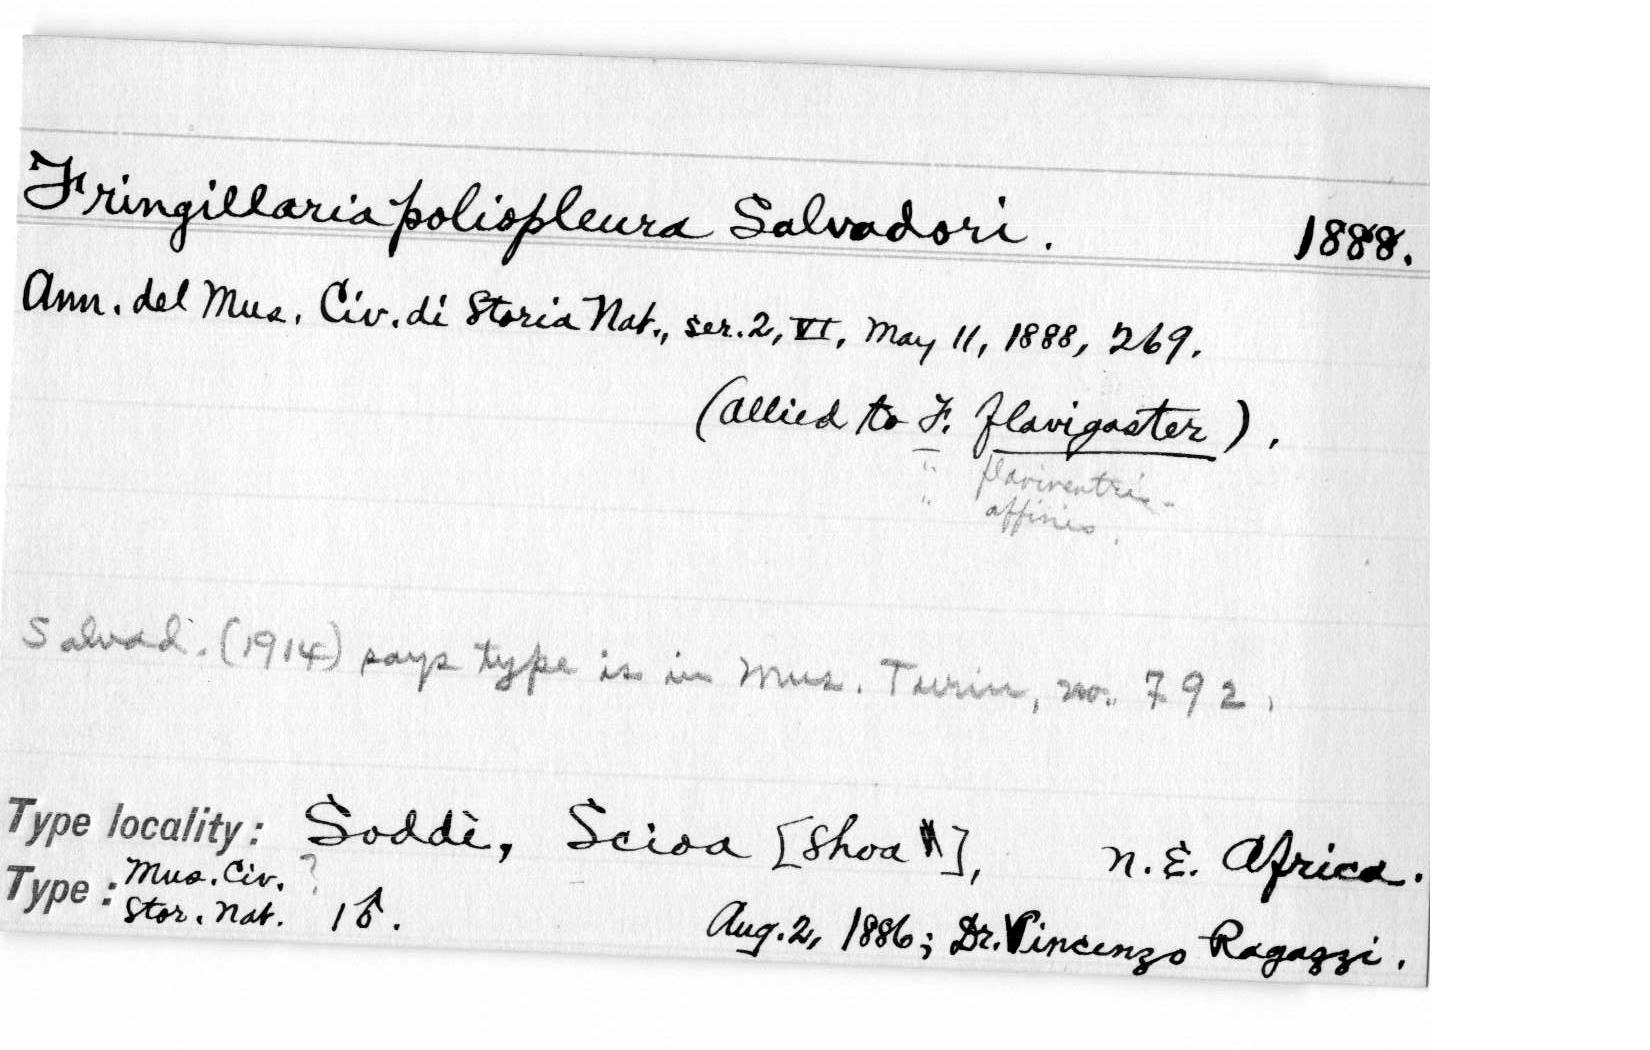 Fringillaria poliopleura Salvadori. 1888.
Ann. del Mus. Civ. di Storia Nat., ser. 2, VI, May 11, 1888, 269.
(allied to F. flavigaster).
" flaviventris
" affinis.
Salvad. (1914) says type is in Mus. Turin, no. 792.
Type locality: Soddè, Scioa [Shoa], N. E. Africa.
Type: Mus. Civ. ?
Stor. Nat. 1 ♂. Aug. 2, 1886; Dr. Vincenzo Ragazzi.